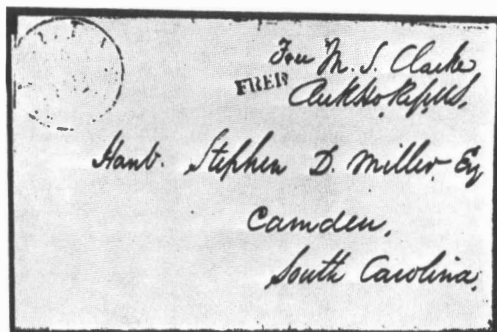 Free M. S. Clarke
FREE
Clk Ho. Reps U.S.
Honb. Stephen D. Miller Esq
Camden,
South Carolina